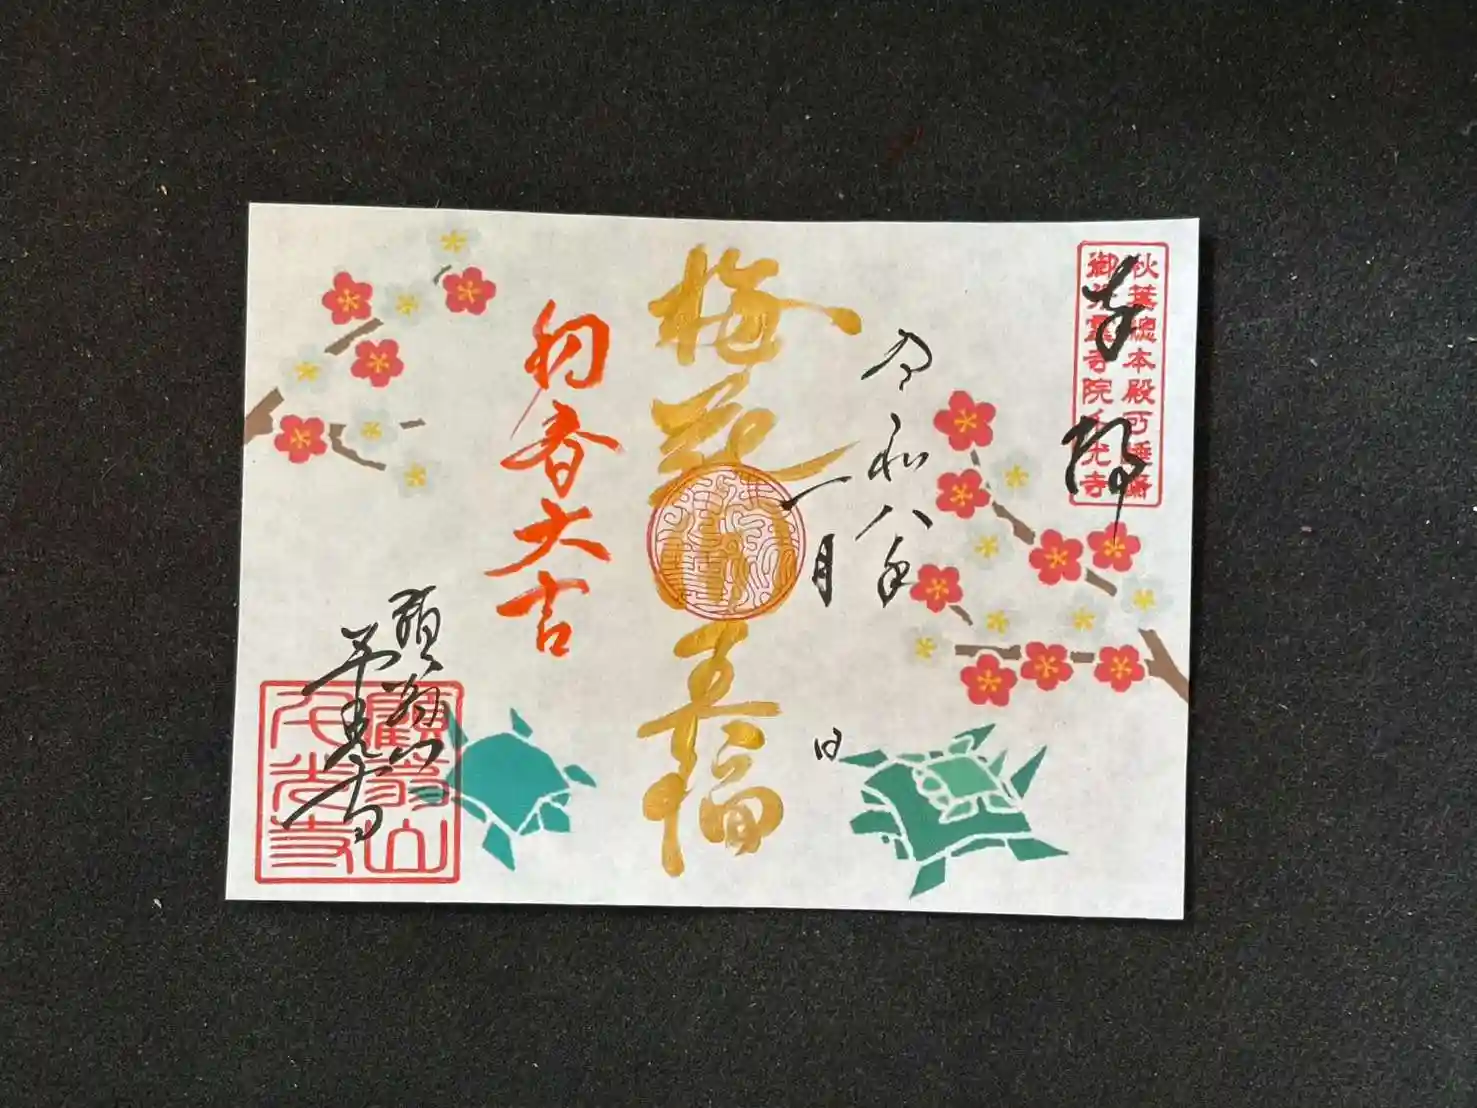 秋葉總本殿可睡齋
御分霊寺院千光寺
奉拝
令和八年
一月 日
梅花開五福
初春大吉
千光寺
千光寺